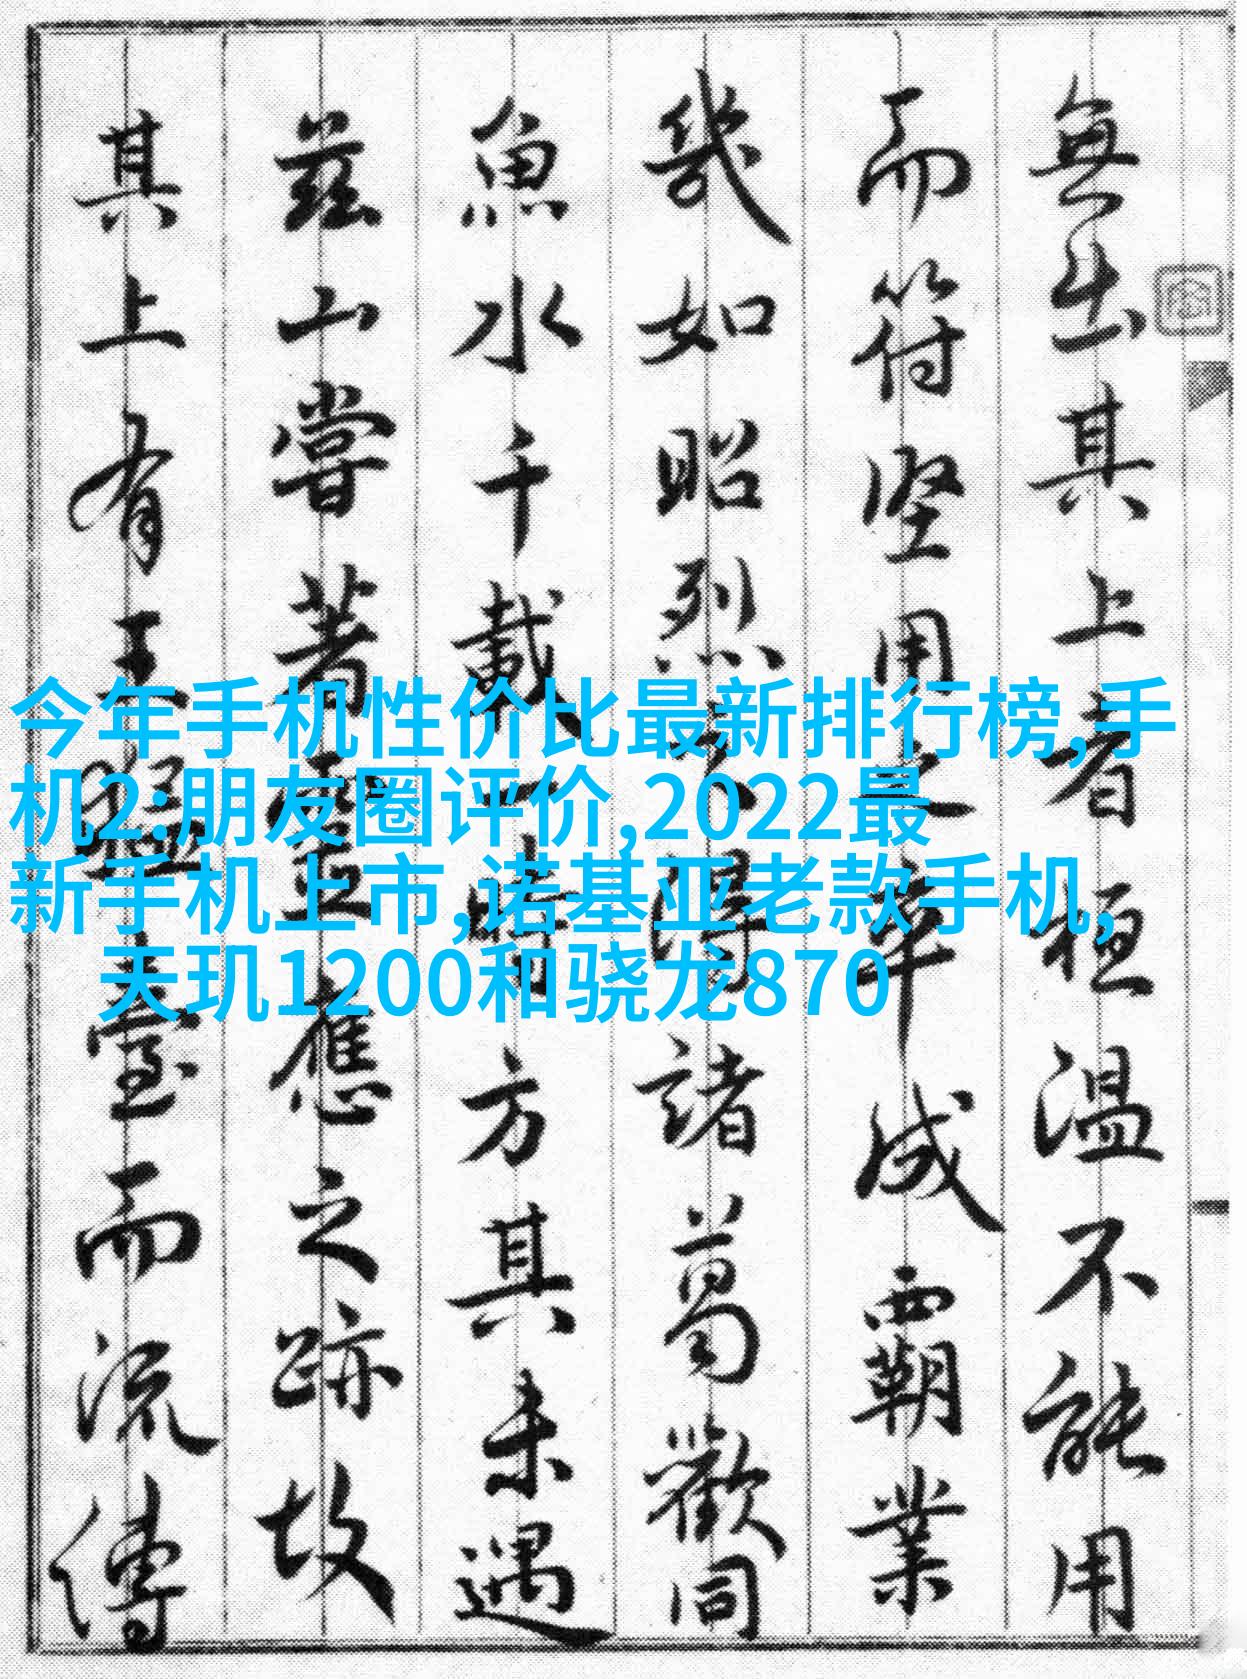 無出其上者桓溫不能用
而符堅用之卒成覇業
幾如昭烈之得諸葛歡同
魚水千載一時方其未遇
茲山嘗著靈應之跡故
其上有王猛臺而流傳
今年手机性价比最新排行榜,手
机2:朋友圈评价,2022最
新手机上市,诺基亚老款手机,
天玑1200和骁龙870